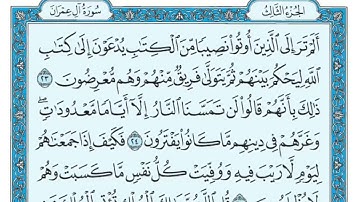 الجزء الثالث سورة آل عمران
أَلَمْ تَرَ إِلَى ٱلَّذِينَ أُوتُوا۟ نَصِيبًا مِّنَ ٱلْكِتَٰبِ يُدْعَوْنَ إِلَىٰ كِتَٰبِ
ٱللَّهِ لِيَحْكُمَ بَيْنَهُمْ ثُمَّ يَتَوَلَّىٰ فَرِيقٌ مِّنْهُمْ وَهُم مُّعْرِضُونَ ٢٣
ذَٰلِكَ بِأَنَّهُمْ قَالُوا۟ لَن تَمَسَّنَا ٱلنَّارُ إِلَّآ أَيَّامًا مَّعْدُودَٰتٍ ۖ
وَغَرَّهُمْ فِى دِينِهِم مَّا كَانُوا۟ يَفْتَرُونَ ٢٤ فَكَيْفَ إِذَا جَمَعْنَٰهُمْ
لِيَوْمٍ لَّا رَيْبَ فِيهِ وَوُفِّيَتْ كُلُّ نَفْسٍ مَّا كَسَبَتْ وَهُمْ